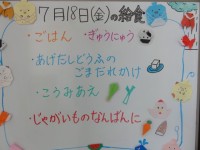 7月18日(金)の給食
・ごはん ・ぎゅうにゅう
・あげだしどうふの
ごまだれかけ
・こうみあえ
・じゃがいものなんばんに